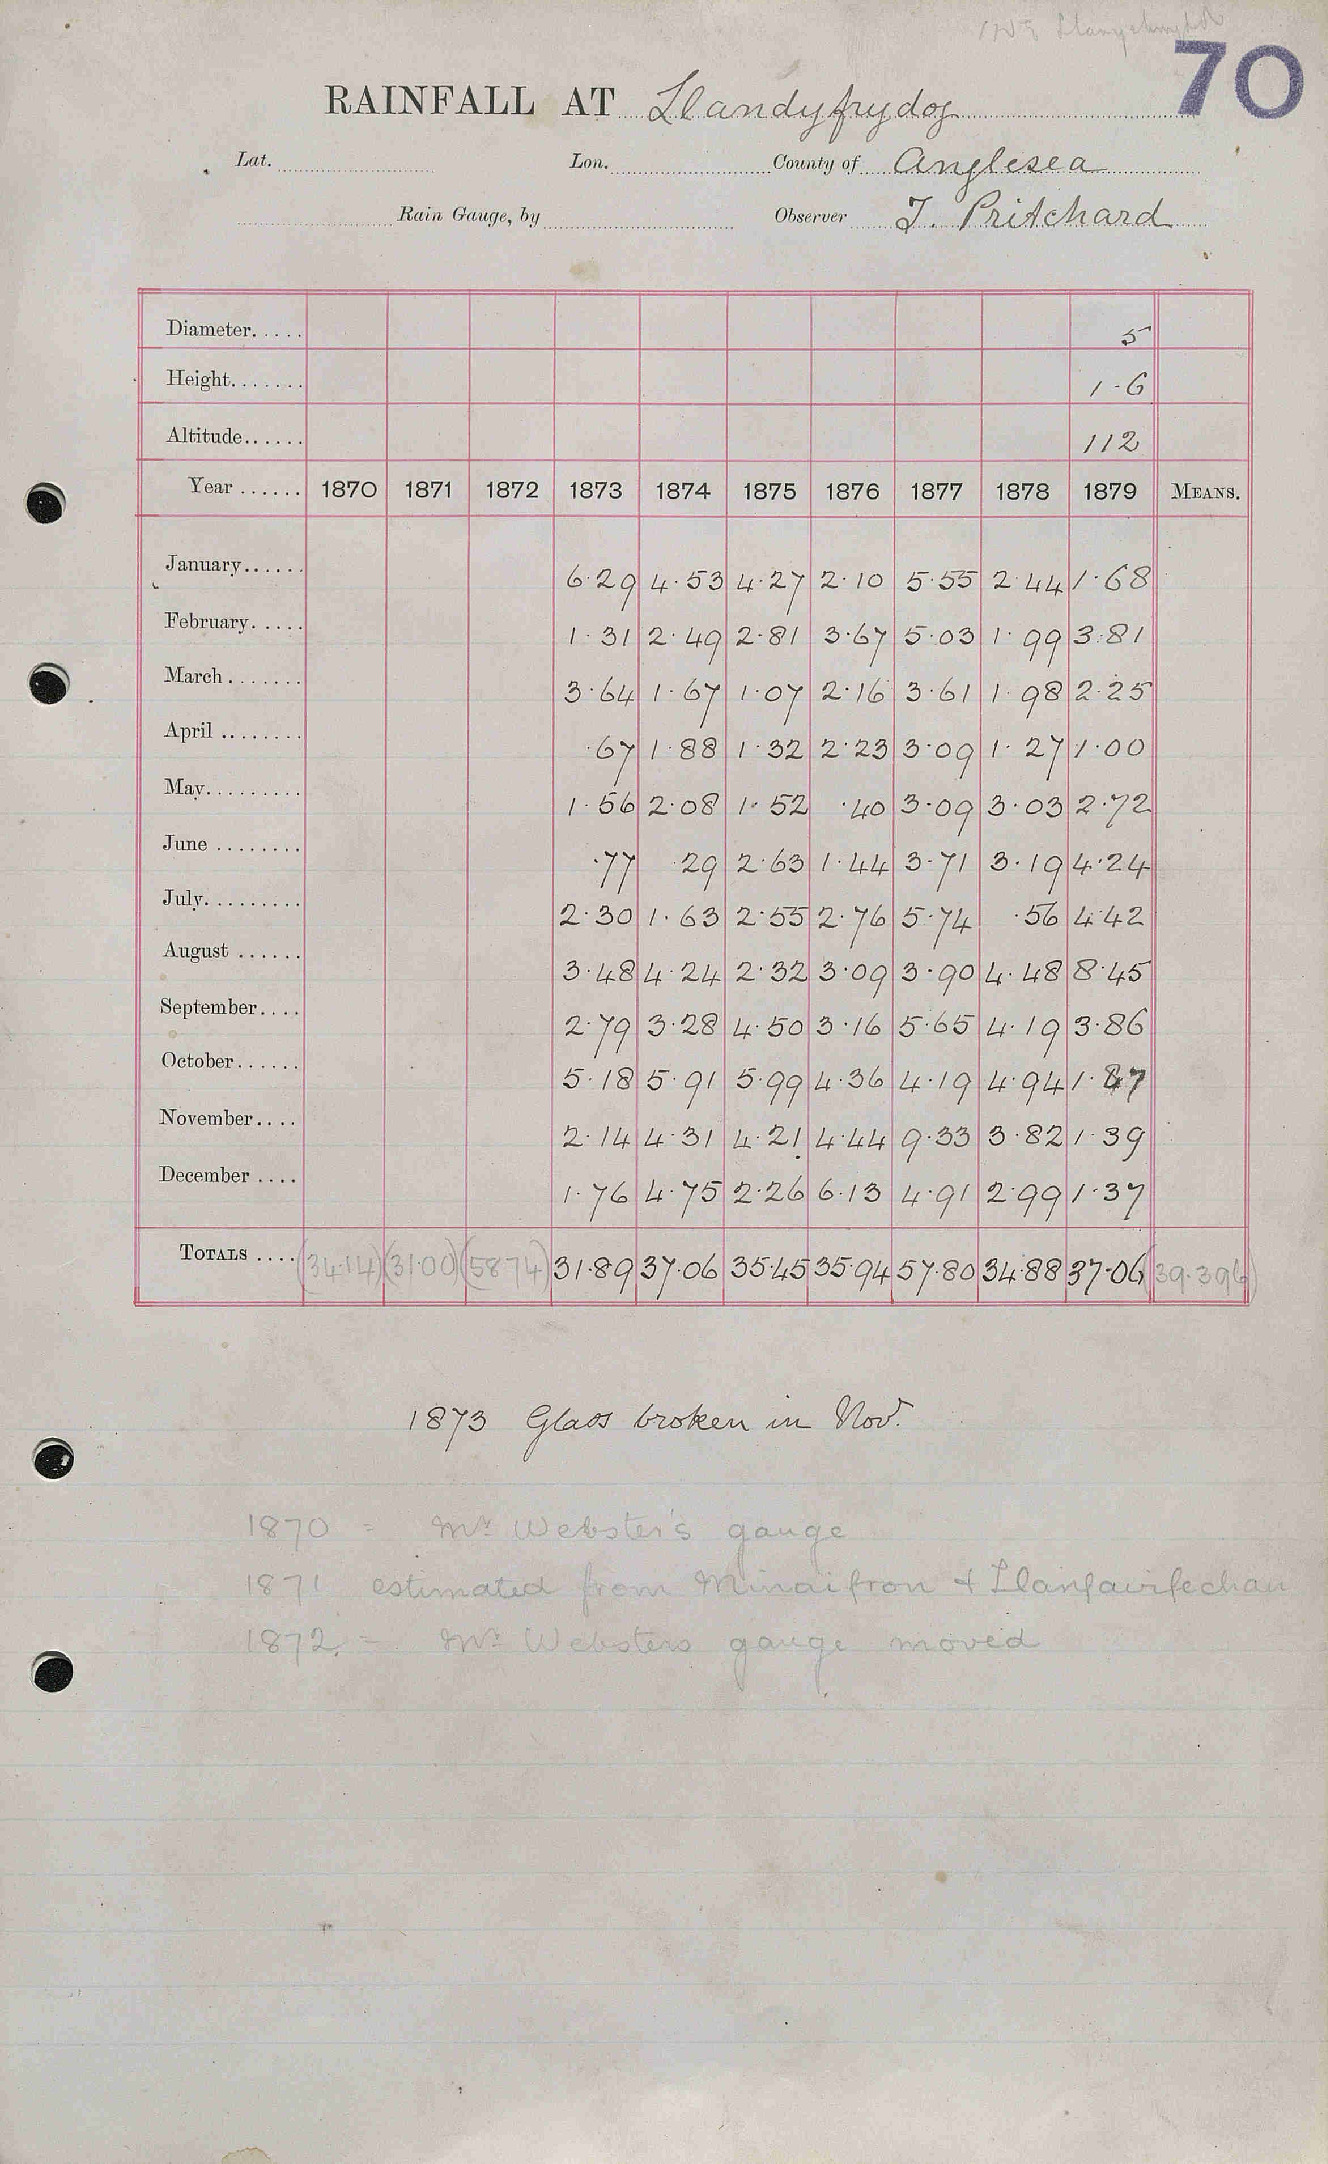 70
RAINFALL AT Llandyfrydog
Lat. Lon. County of Anglesea
Rain Gauge, by Observer J. Pritchard
Diameter..... 5
Height....... 1-6
Altitude...... 112
Year ...... 1870 1871 1872 1873 1874 1875 1876 1877 1878 1879 MEANS.
January...... 6.29 4.53 4.27 2.10 5.55 2.44 1.68
February..... 1.31 2.49 2.81 3.67 5.03 1.99 3.81
March....... 3.64 1.67 1.07 2.16 3.61 1.98 2.25
April ........ .67 1.88 1.32 2.23 3.09 1.27 1.00
May......... 1.56 2.08 1.52 .40 3.09 3.03 2.72
June ........ .77 .29 2.63 1.44 3.71 3.19 4.24
July......... 2.30 1.63 2.55 2.76 5.74 .56 4.42
August ...... 3.48 4.24 2.32 3.09 3.90 4.48 8.45
September.... 2.79 3.28 4.50 3.16 5.65 4.19 3.86
October...... 5.18 5.91 5.99 4.36 4.19 4.94 1.87
November.... 2.14 4.31 4.21 4.44 9.33 3.82 1.39
December .... 1.76 4.75 2.26 6.13 4.91 2.99 1.37
TOTALS .... (34.14) (31.00) (58.74) 31.89 37.06 35.45 35.94 57.80 34.88 37.06 (39.396)
1873 Glass broken in Nov.
1870 = Mr Webster's gauge
1871 estimated from Minaifron + Llanfairfechan
1872 = Mr Websters gauge moved